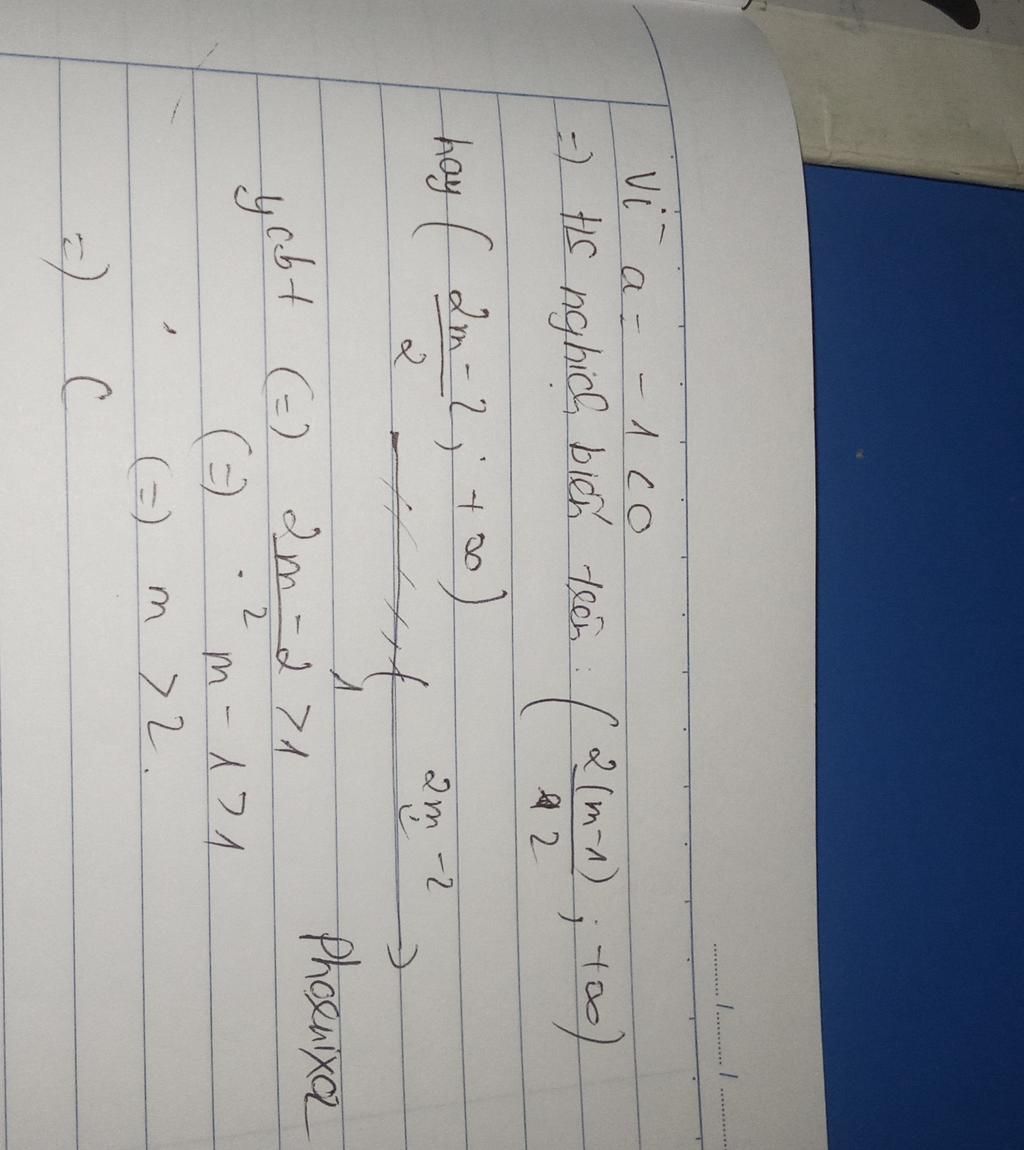 Vì a = -1 < 0
=) HS nghịch biến trên: ( 2(m-1) / 2 ; +∞)
hay ( 2m-2 / 2 ; +∞)
1 2m-2
ycbt (=) 2m-2 / 2 > 1
(=) m - 1 > 1
(=) m > 2.
=) C
Phoenixaz